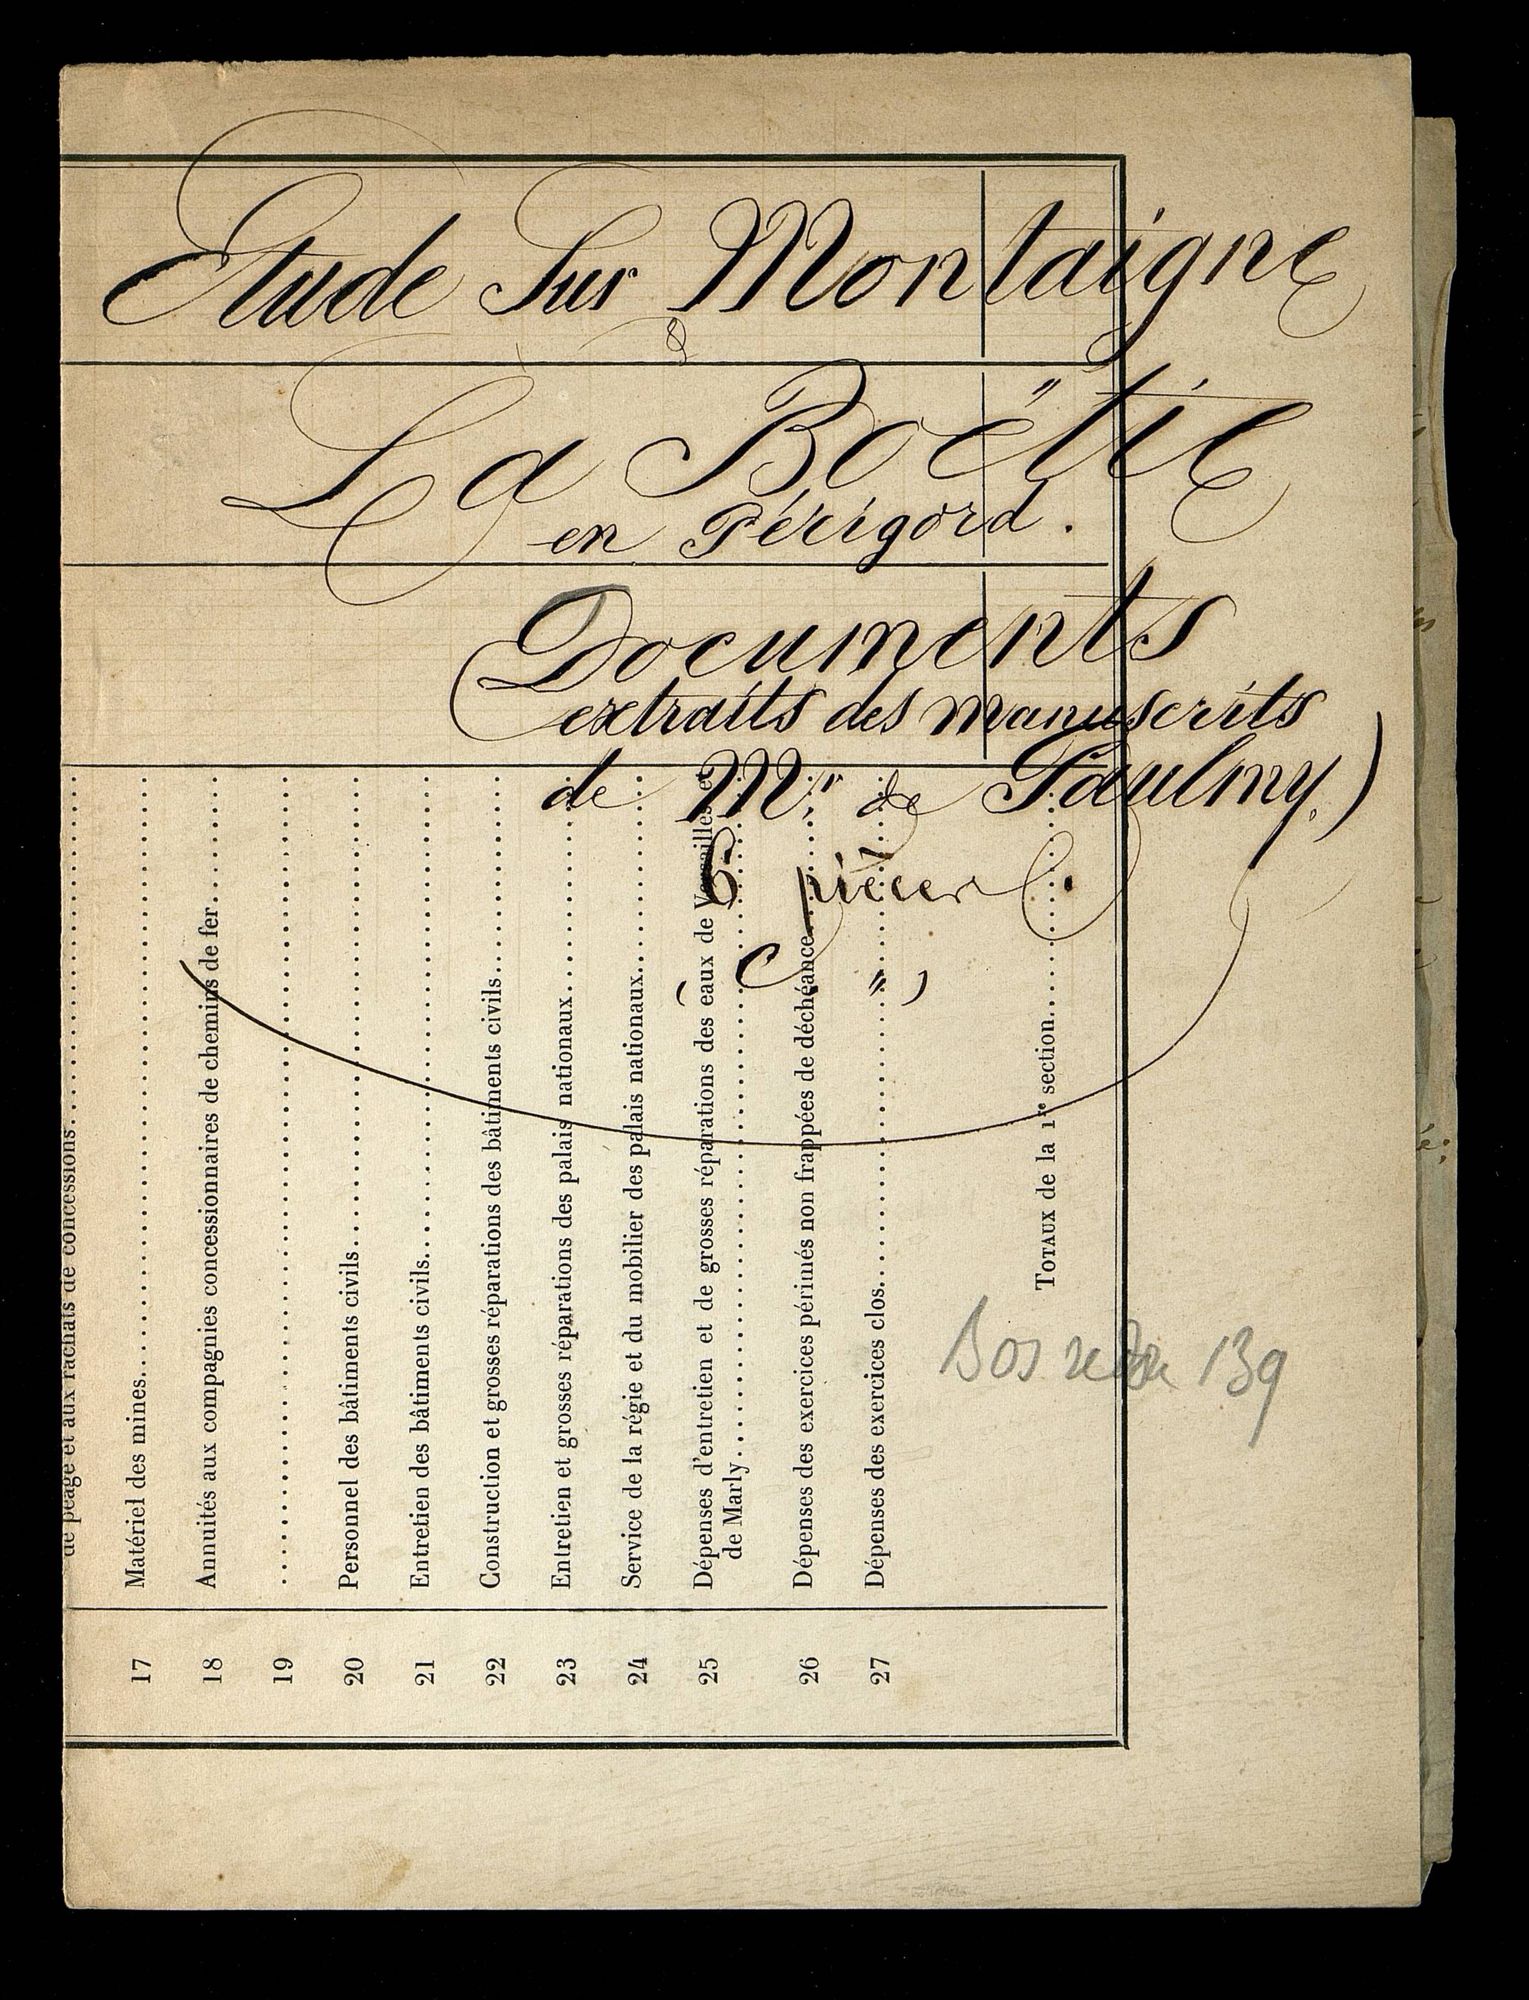 Etude sur Montaigne
&
La Boëtie
en Périgord.
(Documents
extraits des manuscrits
de Mr. de Paulmy.)
6 pièces.
( C. " )
139
de péage et aux rachats de concessions
17 Matériel des mines
18 Annuités aux compagnies concessionnaires de chemins de fer
19
20 Personnel des bâtiments civils
21 Entretien des bâtiments civils
22 Construction et grosses réparations des bâtiments civils
23 Entretien et grosses réparations des palais nationaux
24 Service de la régie et du mobilier des palais nationaux
25 Dépenses d'entretien et de grosses réparations des eaux de Versailles et
de Marly
26 Dépenses des exercices périmés non frappées de déchéance
27 Dépenses des exercices clos
TOTAUX de la 1re section